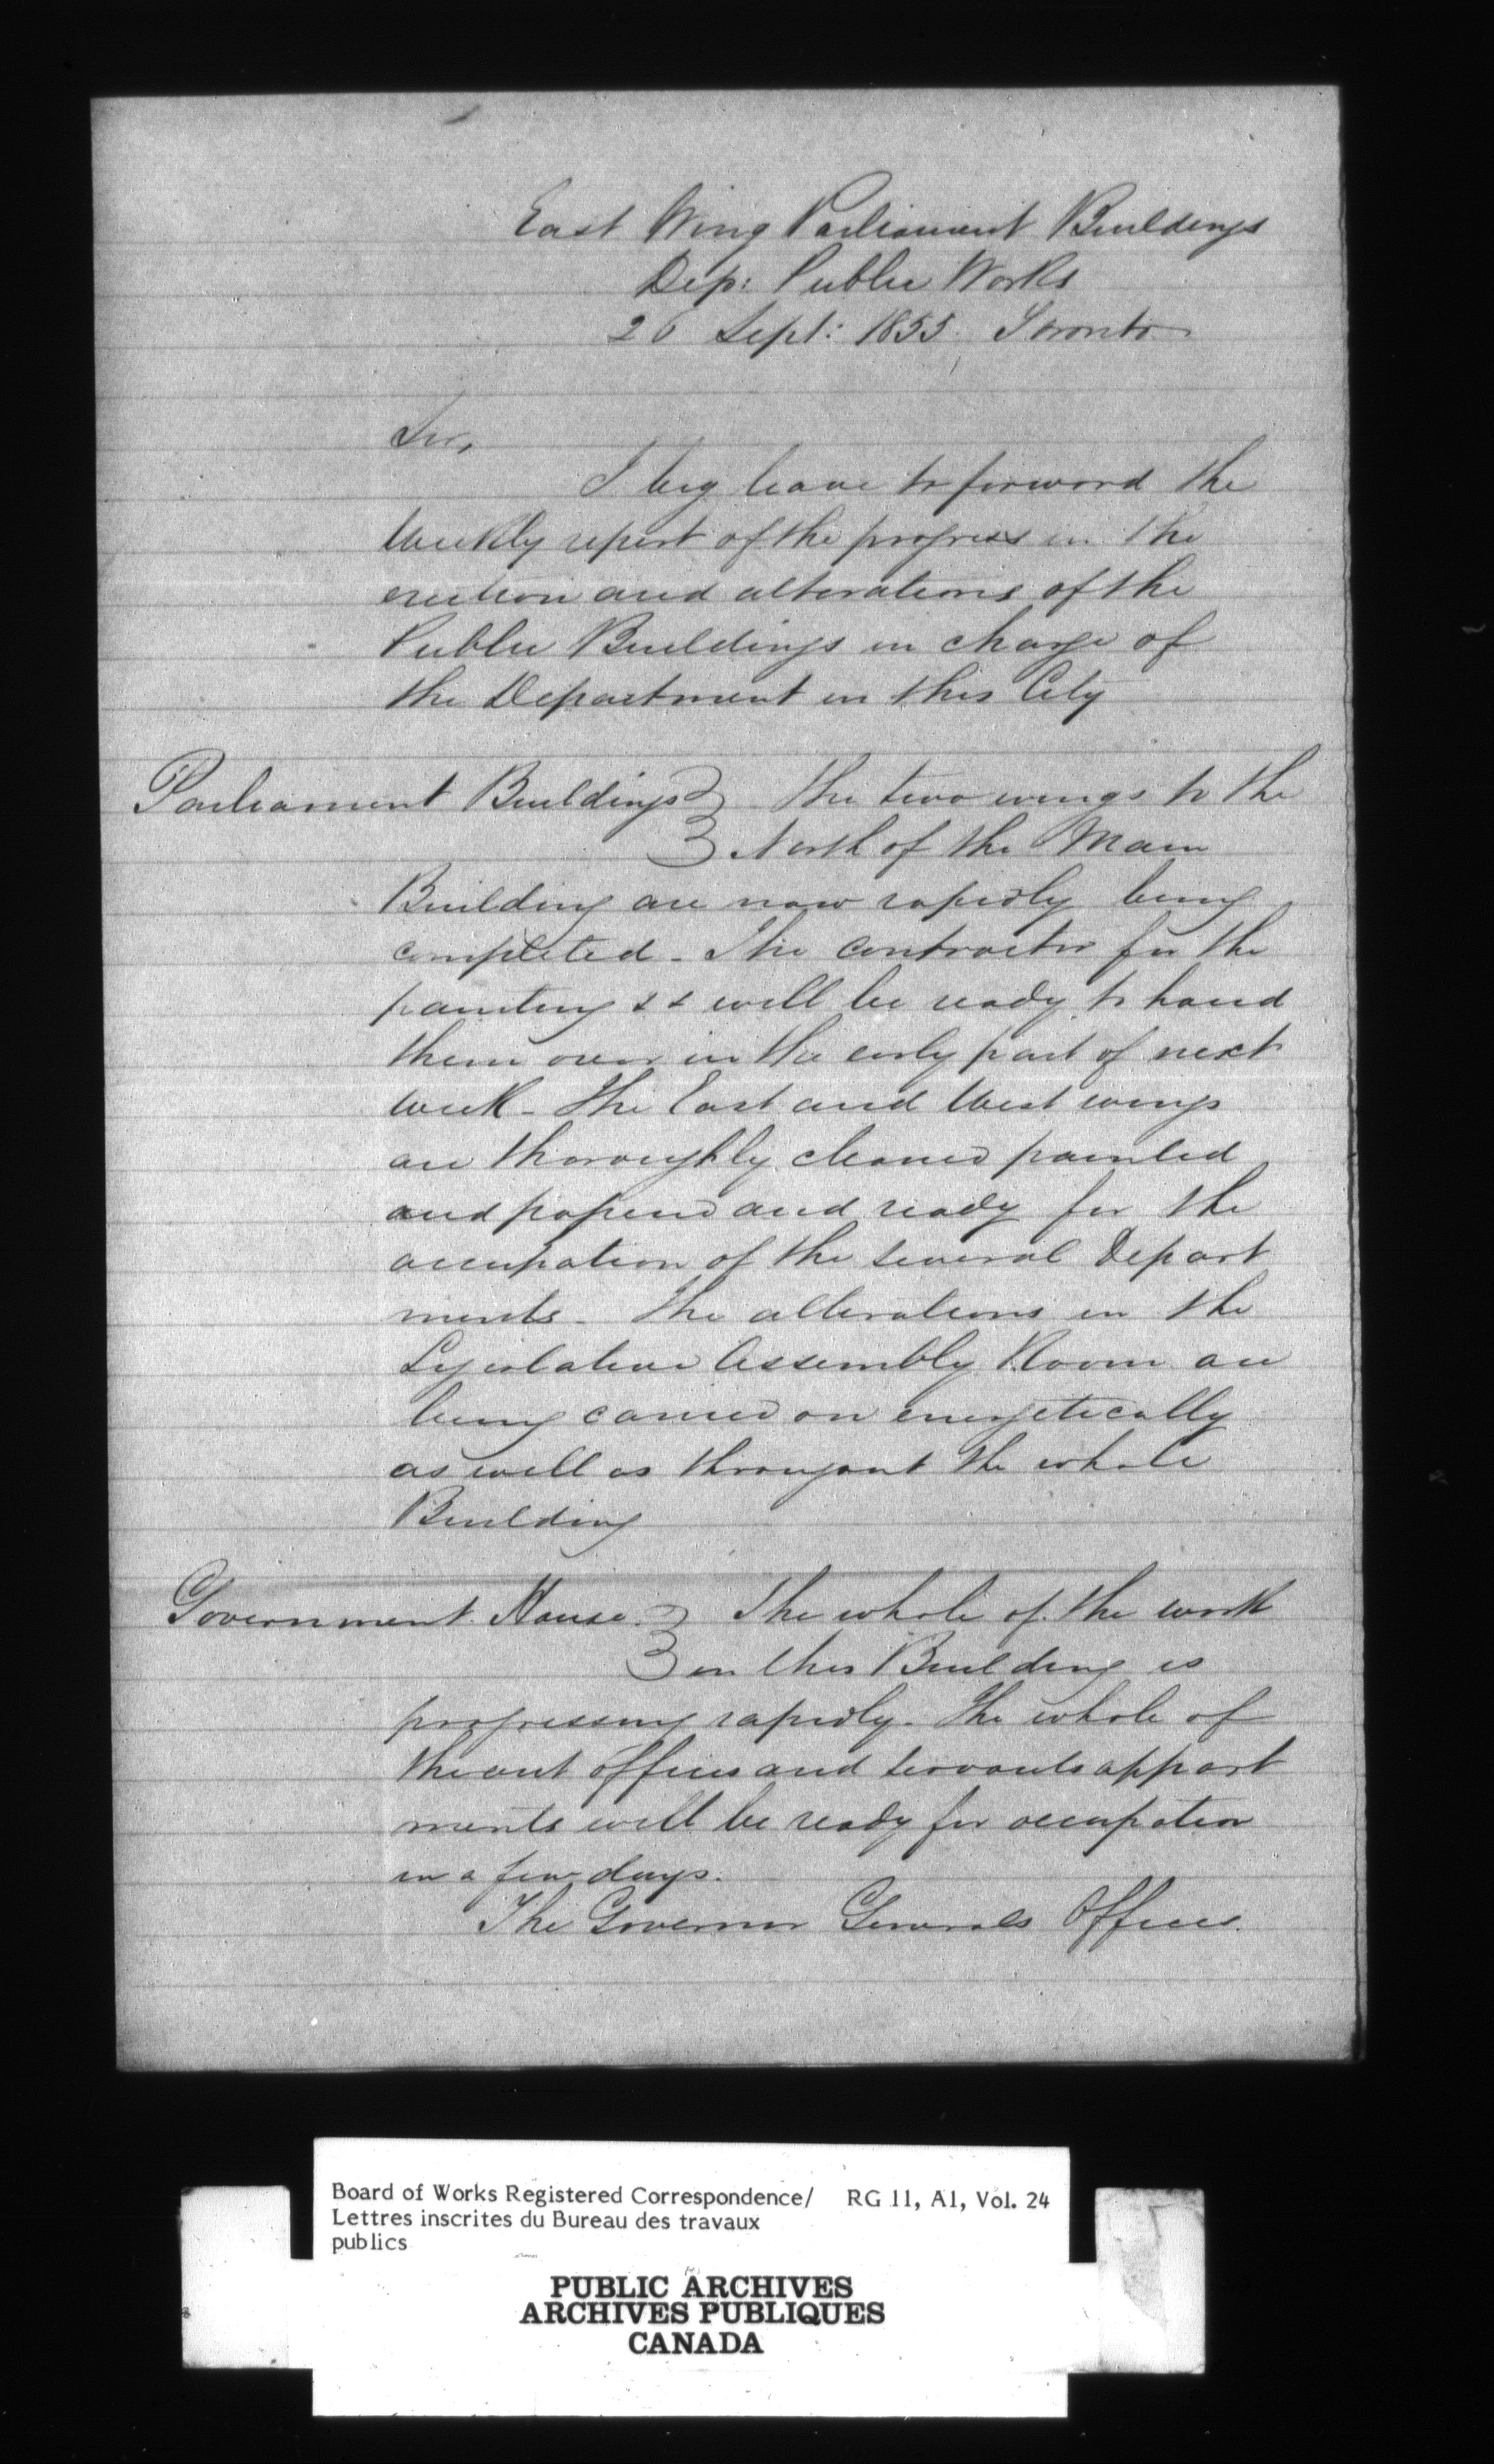 East Wing Parliament Buildings
Dep: Public Works
26 Sept: 1855. Toronto
Sir,
I beg leave to forward the
Weekly report of the progress in the
erection and alterations of the
Public Buildings in charge of
the Department in this City
Parliament Buildings } The two wings to the
} North of the Main
Building are now rapidly being
completed - The contractor for the
painting && will be ready to hand
them over in the early part of next
week - The East and West wings
are thoroughly cleaned painted
and papered and ready for the
occupation of the several Depart
ments - The alterations in the
Legislative Assembly Room are
being carried on energetically
as well as througout the whole
Building
Government House. } The whole of the work
} in this Building is
progressing rapidly - The whole of
the out offices and servants appart
ments will be ready for occupation
in a few days.
The Governor Generals Offices.
Board of Works Registered Correspondence/ RG 11, A1, Vol. 24
Lettres inscrites du Bureau des travaux
publics
PUBLIC ARCHIVES
ARCHIVES PUBLIQUES
CANADA